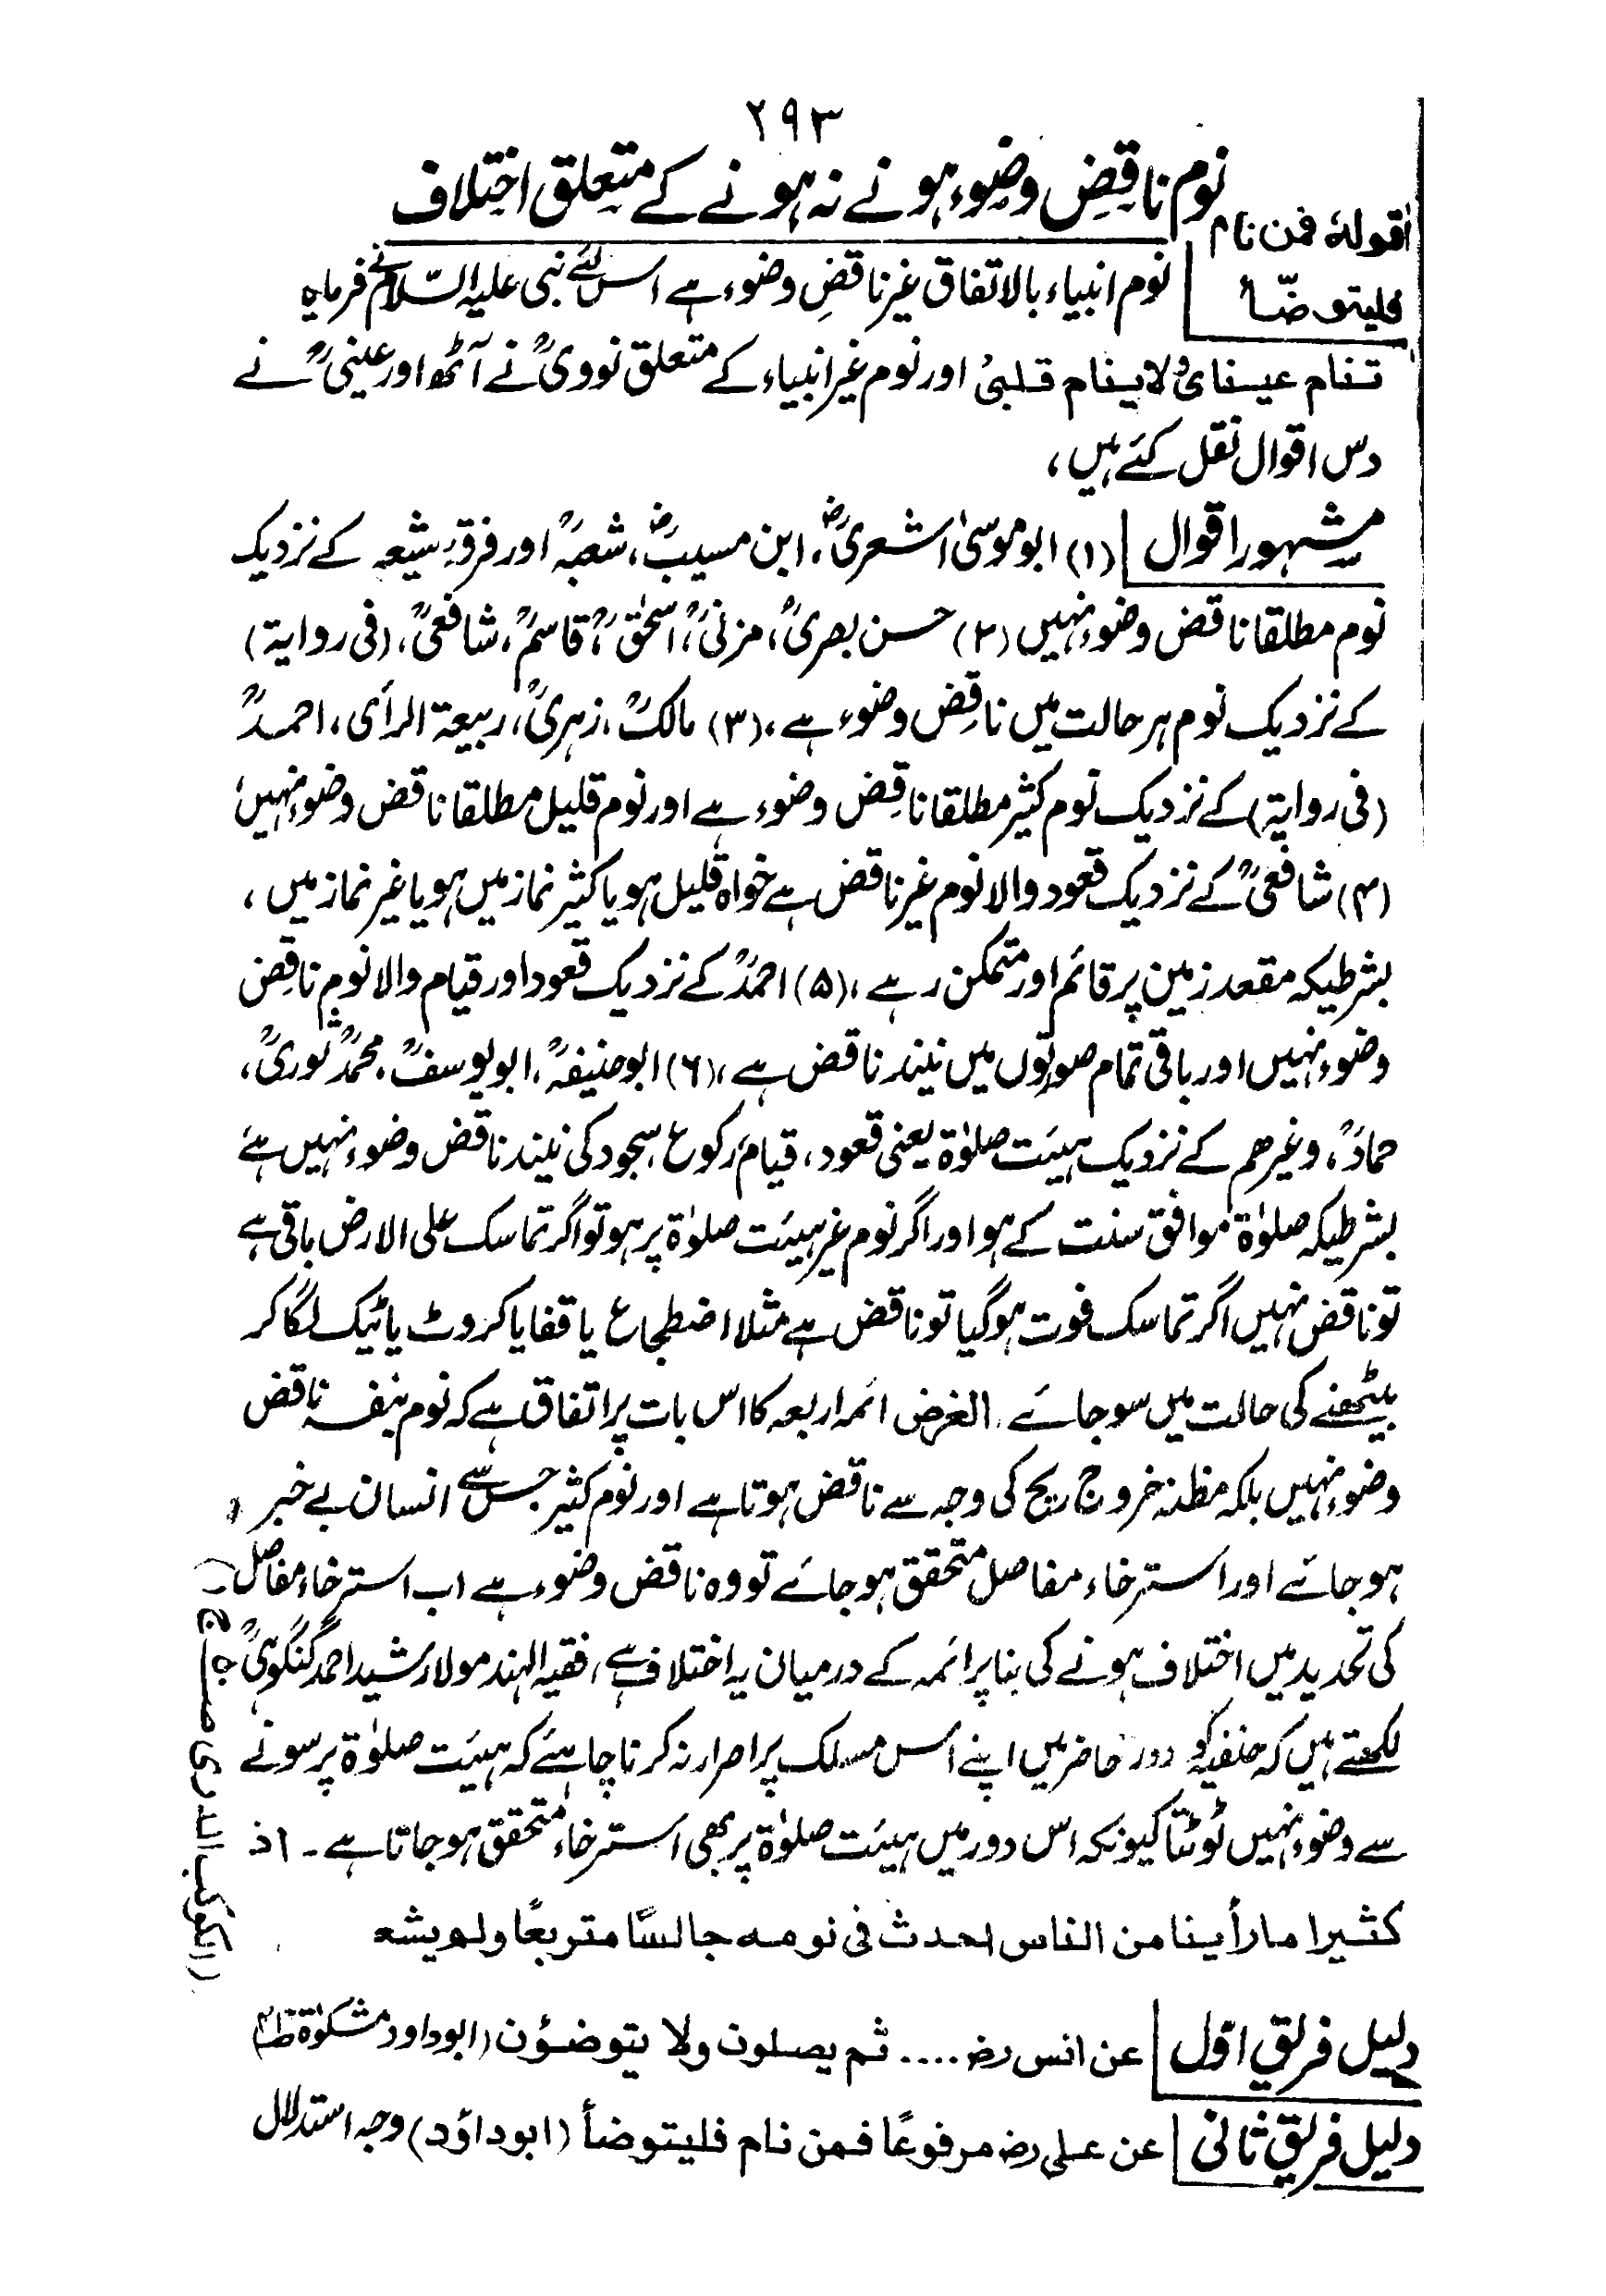 ۲۹۳
نوم ناقِضِ وضوء ہونے نہ ہونے کے متعلق اختلاف
قولہٗ فمن نام فلیتوضّأ
نوم انبیاء بالاتفاق غیر ناقضِ وضوء ہے اس لئے نبی علیہ السّلام نے فرمایا
تنام عینای ولا ینام قلبی اور نوم غیر انبیاء کے متعلق نوویؒ نے آٹھ اور عینیؒ نے
دس اقوال نقل کئے ہیں ،
مشہور اقوال (۱) ابو موسیٰ اشعریؓ ، ابن مسیبؓ ، شعبہؒ اور فرقۂ شیعہ کے نزدیک
نوم مطلقا ناقض وضوء نہیں (۲) حسن بصریؒ ، مزنیؒ ، اسحٰقؒ ، قاسمؒ ، شافعیؒ ، (فی روایۃ)
کے نزدیک نوم ہر حالت میں ناقِض وضوء ہے ، (۳) مالکؒ ، زہریؒ ، ربیعۃ الرأی ، احمدؒ
(فی روایۃ) کے نزدیک نوم کثیر مطلقا ناقِض وضوء ہے اور نوم قلیل مطلقا ناقض وضوء نہیں
(۴) شافعیؒ کے نزدیک قعود والا نوم غیر ناقض ہے خواہ قلیل ہو یا کثیر نماز میں ہو یا غیر نماز میں ،
بشرطیکہ مقعد زمین پر قائم اور متمکن رہے ، (۵) احمدؒ کے نزدیک قعود اور قیام والا نوم ناقِض
وضوء نہیں اور باقی تمام صورتوں میں نیند ناقض ہے ، (۶) ابو حنیفہؒ ، ابو یوسفؒ ، محمدؒ ثوریؒ ،
حمادؒ ، وغیرھم کے نزدیک ہیئت صلوٰۃ یعنی قعود ، قیام رکوع ، سجود کی نیند ناقض وضوء نہیں ہے
بشرطیکہ صلوٰۃ موافق سنت کے ہو اور اگر نوم غیر ہیئت صلوٰۃ پر ہو تو اگر تماسک علی الارض باقی ہے
تو ناقض نہیں اگر تماسک فوت ہو گیا تو ناقض ہے مثلا اضطجاع یا قفا یا کروٹ یا ٹیک لگا کر
بیٹھنے کی حالت میں سو جائے ۔ الغرض ائمہ اربعہ کا اس بات پر اتفاق ہے کہ نوم بنفسہ ناقض
وضوء نہیں بلکہ مظنہ خروج ریح کی وجہ سے ناقض ہوتا ہے اور نوم کثیر جس سے انسان بے خبر
ہو جائے اور استرخاء مفاصل متحقق ہو جائے تو وہ ناقض وضوء ہے اب استرخاء مفاصل
کی تحدید میں اختلاف ہونے کی بنا پر ائمہ کے درمیان یہ اختلاف ہے ، فقیہ الہند مولانا رشید احمد گنگوہیؒ
لکھتے ہیں کہ حنفیہ کو دور حاضر میں اپنے اس مسلک پر اصرار نہ کرنا چاہئے کہ ہیئت صلوٰۃ پر سونے
سے وضوء نہیں ٹوٹتا کیونکہ اس دور میں ہیئت صلوٰۃ پر بھی استرخاء متحقق ہو جاتا ہے ۔ اذ
کثیرا ما رأینا من الناس احدث فی نومہ جالسًا متربعًا ولم یشعر
(الکوکب الدری
دلیل فریق اوّل عن انس رض .... ثم یصلون ولا یتوضؤن (ابوداود مشکوٰۃ
دلیل فریق ثانی عن علی رض مرفوعًا فمن نام فلیتوضأ (ابوداؤد) وجہ استدلال